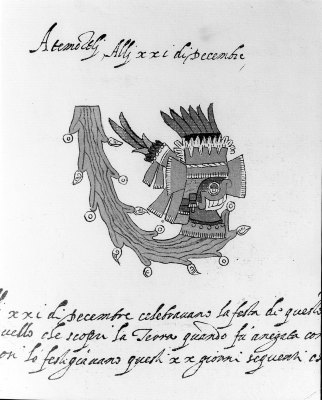 Alli xxi di Decembre
xxi di Decembre celebrauano la festa di
uello che scopri la Terra quando fu anegata con
lo festigiauano questi xx giorni seguenti